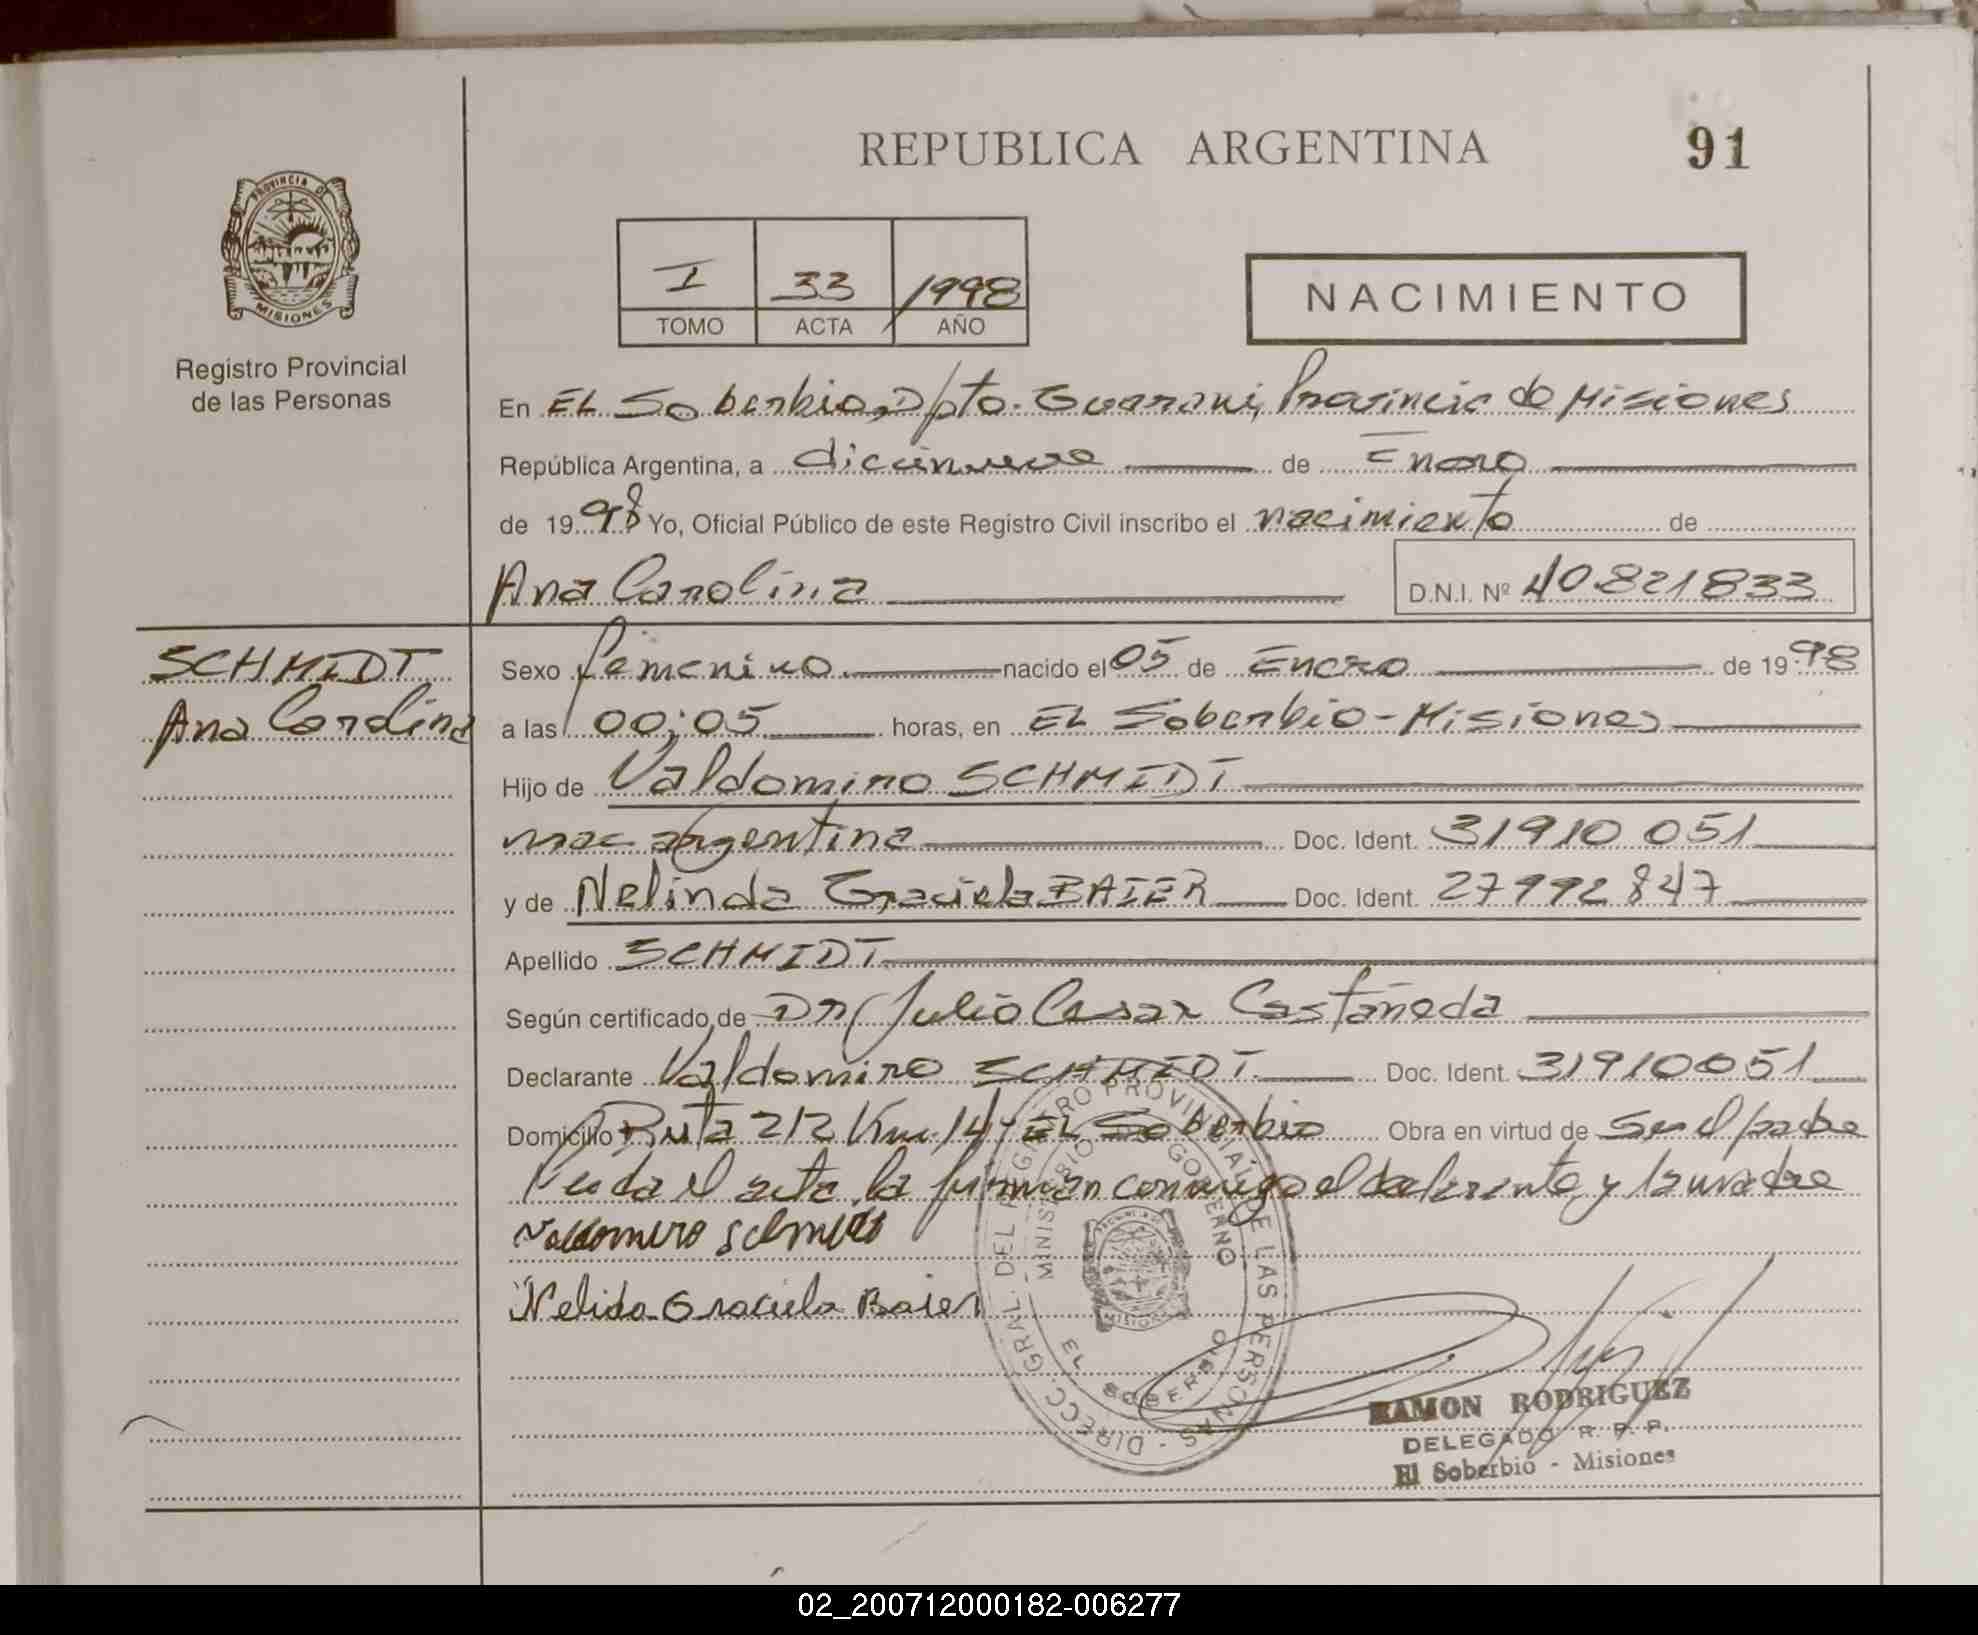 REPUBLICA ARGENTINA
91
PROVINCIA DE
MISIONES
Registro Provincial
de las Personas
I 33 1998
TOMO ACTA AÑO
NACIMIENTO
En EL Soberbio, Dpto. Guarani, Provincia de Misiones
República Argentina, a diecinueve de Enero
de 1998 Yo, Oficial Público de este Registro Civil inscribo el nacimiento de
Ana Carolina D.N.I. Nº 40821833
SCHMIDT
Ana Carolina
Sexo femenino nacido el 05 de Enero de 1998
a las 00:05 horas, en EL Soberbio-Misiones
Hijo de Valdomiro SCHMIDT
nac argentina Doc. Ident. 31910 051
y de Nelinda Graciela BAIER Doc. Ident. 27992847
Apellido SCHMIDT
Según certificado de Dr Julio Cesar Castañeda
Declarante Valdomiro SCHMIDT Doc. Ident. 31910051
Domicilio Ruta 212 Km. 14- EL Soberbio Obra en virtud de Ser el padre
Leida el acta, la firman conmigo el declarante y la madre
Valdomiro Schmidt
Nelida Graciela Baier
DIRECC. GRAL. DEL REGISTRO PROVINCIAL DE LAS PERSONAS -
MINISTERIO GOBIERNO
MISIONES
EL SOBERBIO
RAMON RODRIGUEZ
DELEGADO R. P. P.
El Soberbio - Misiones
02_200712000182-006277